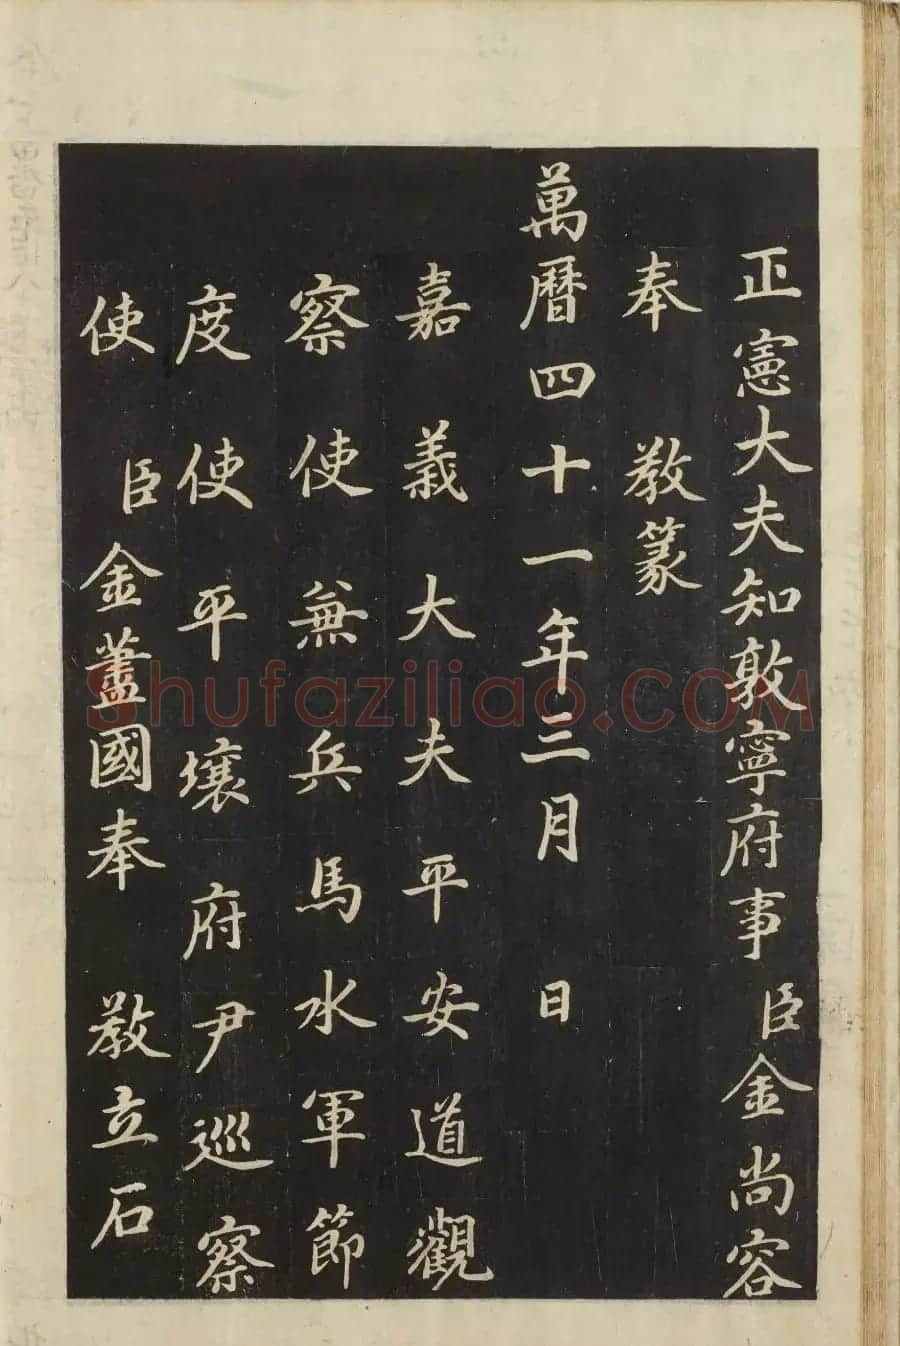 正憲大夫知敦寧府事臣金尚容
奉　教篆
萬曆四十一年三月　日
嘉義大夫平安道觀
察使兼兵馬水軍節
度使平壤府尹巡察
使　臣金藎國奉　教立石
Shufaziliao.COM